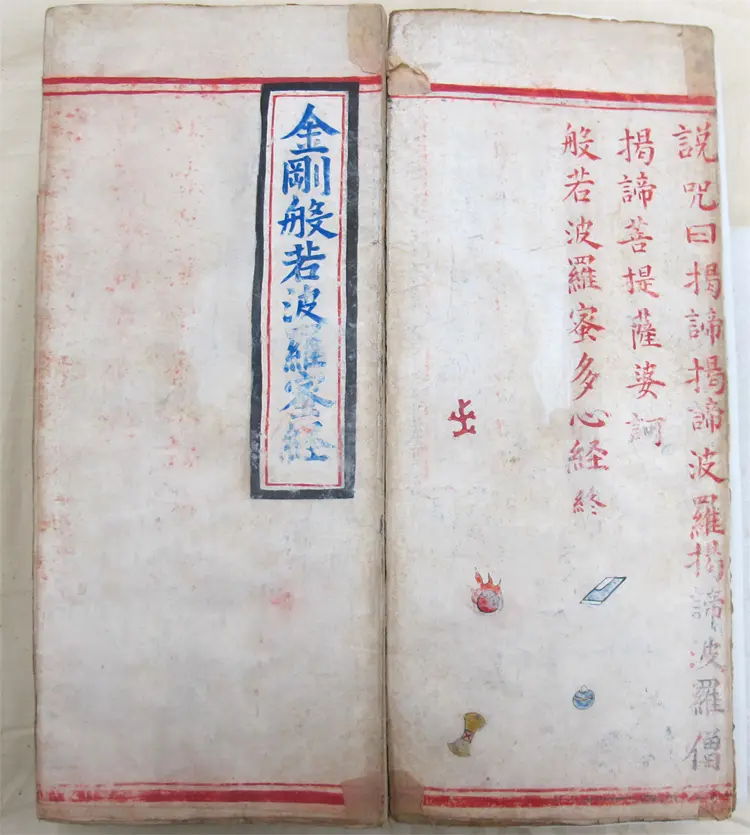 金剛般若波羅蜜経
説呪曰揭諦揭諦波羅揭諦波羅僧
揭諦菩提薩婆訶
般若波羅蜜多心経終